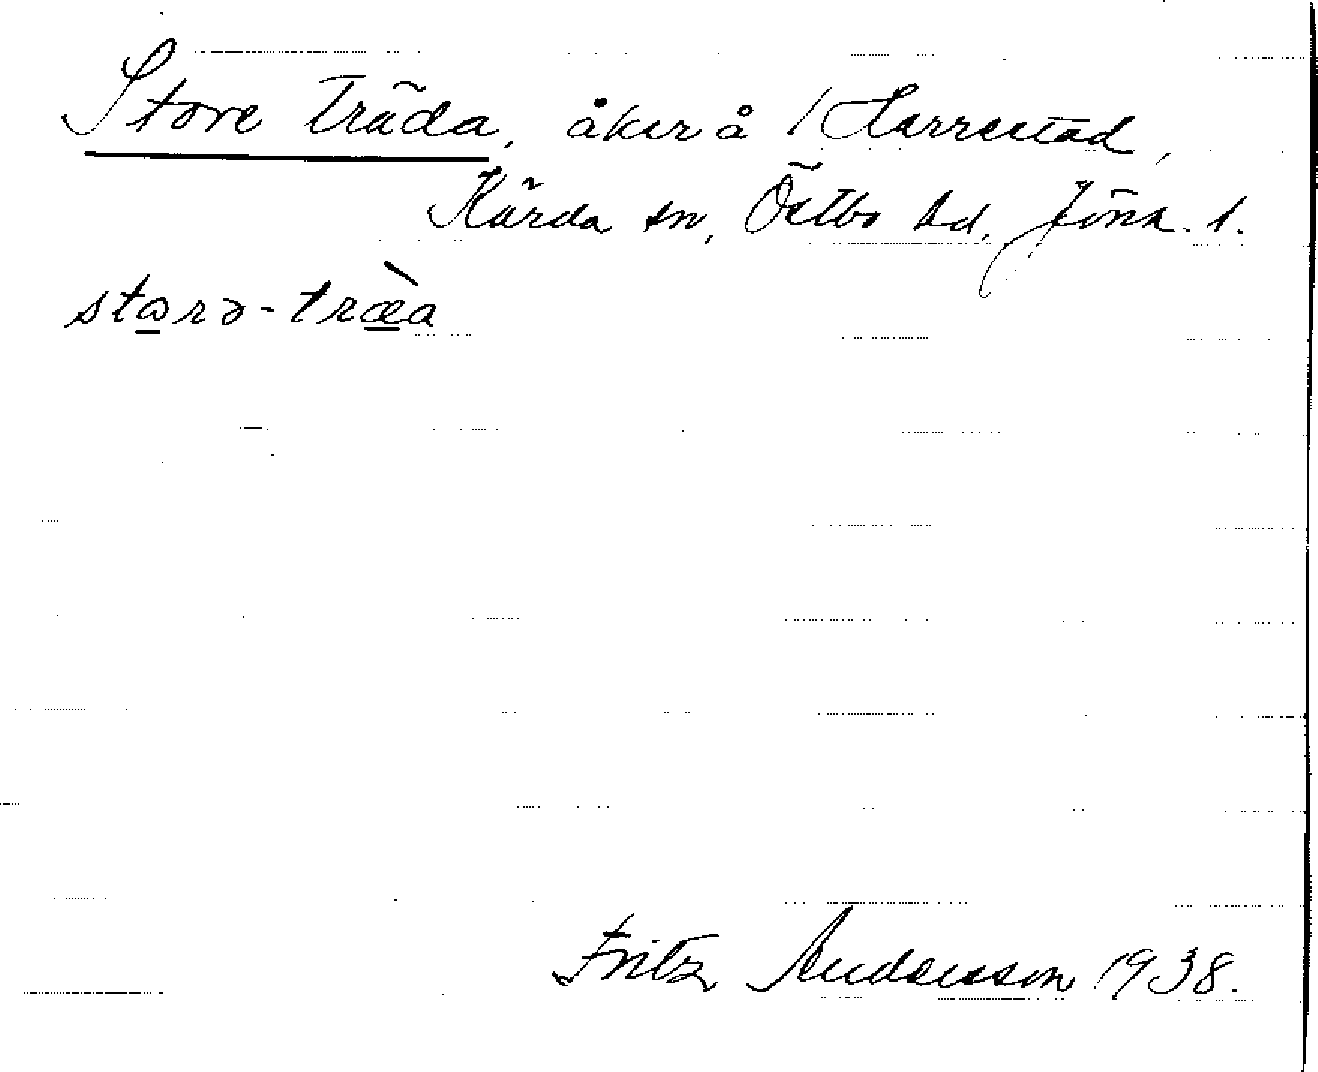 Store Träda, åker å /Harrestad,
Kärda sn, Östbo hd. Jönk. l.
storə-træ̀a
Fritz Andersson 1938.